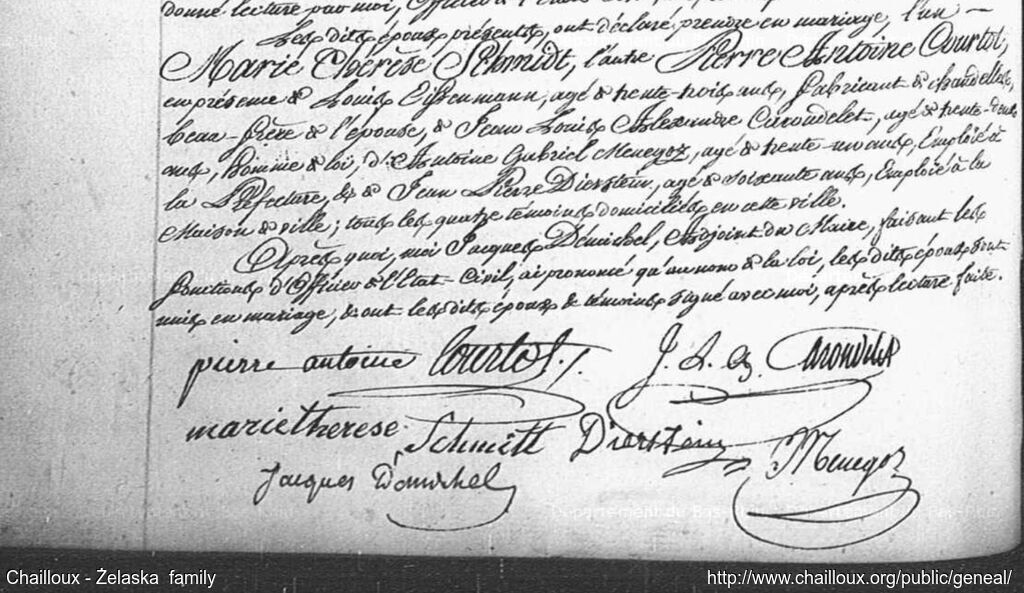 donné lecture par moi, Officier de l'Etat
Les dits époux présents, ont déclaré prendre en mariage, l'un
Marie Thérèse Schmidt, l'autre Pierre Antoine Courtot,
en présence de Louis Eissenmann, agé de trente-trois ans, Fabricant de chandelles,
beau-frère de l'épouse, de Jean Louis Alexandre Carondelet, agé de trente-deux
ans, Homme de loi, d'Antoine Gabriel Menegoz, agé de trente-un ans, Employé à
la Préfecture, & de Jean Pierre Dierstein, agé de soixante ans, Employé à la
Maison de ville; tous les quatre témoins domiciliés en cette ville.
Après quoi, moi Jacques Démichel, Adjoint du Maire, faisant les
fonctions d'Officier de l'Etat Civil, ai prononcé qu'au nom de la loi, les dits époux sont
unis en mariage, & ont les dits époux & témoins signé avec moi, après lecture faite.
pierre antoine Courtot J. L. A. Carondelet
marie therese Schmitt Dierstein Menegoz
Jacques Démichel
Département du Bas-Rhin
Chailloux - Żelaska family http://www.chailloux.org/public/geneal/